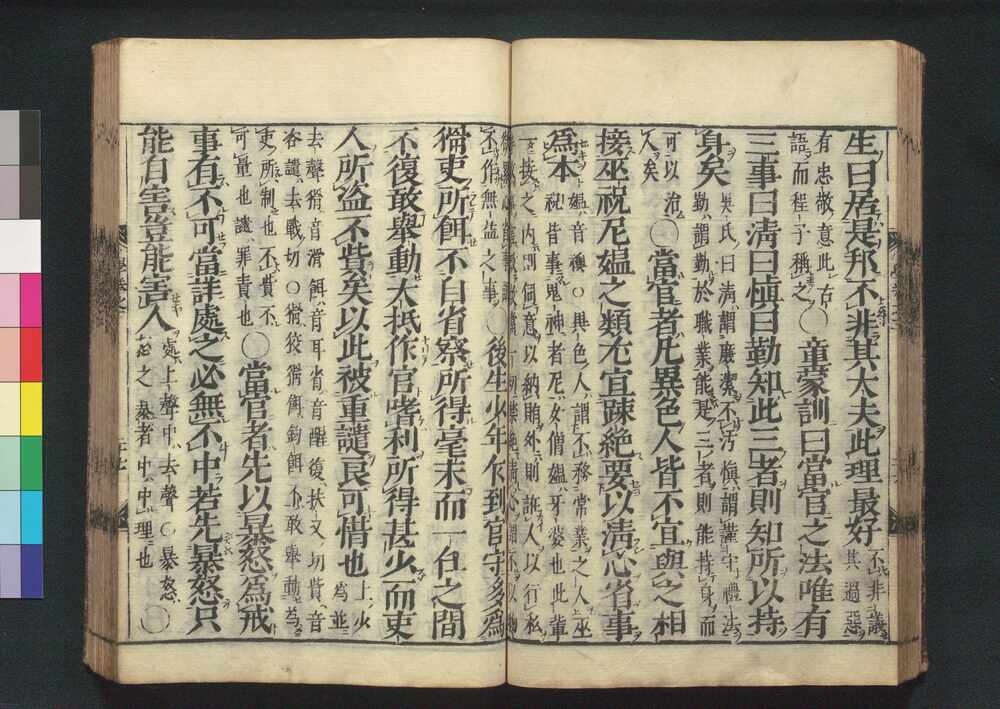 生曰居是邦不非其大夫此理最好不非議其過惡
有忠敬意此古語而程子稱之○童蒙訓曰當官之法唯有
三事曰淸曰愼曰勤知此三者則知所以持
身矣吳氏曰淸謂廉潔不汚愼謂謹守禮法勤謂勤於職業能是三者則能持身而
可以治人矣○當官者凡異色人皆不宜與之相
接巫祝尼媼之類尤宜疎絶要以淸心省事
爲本媼音襖○異色人謂不務常業之人巫祝皆事鬼神者尼女僧媼牙婆也此輩
一接之內則伺意以納賄外則誑人以行私
不作無益之事○後生少年乍到官守多爲
猾吏所餌不自省察所得毫末而一任之間
不復敢擧動大抵作官嗜利所得甚少而吏
人所盜不貲矣以此被重譴良可惜也上少爲並
去聲猾音滑餌音耳省音醒復扶又切貲音咨譴去戰切○猾狡猾餌釣餌不敢擧動爲
吏所制也不貲不可量也譴罪責也○當官者先以暴怒爲戒
事有不可當詳處之必無不中若先暴怒只
能自害豈能害人處上聲中去聲○暴怒忿之暴者中中理也○